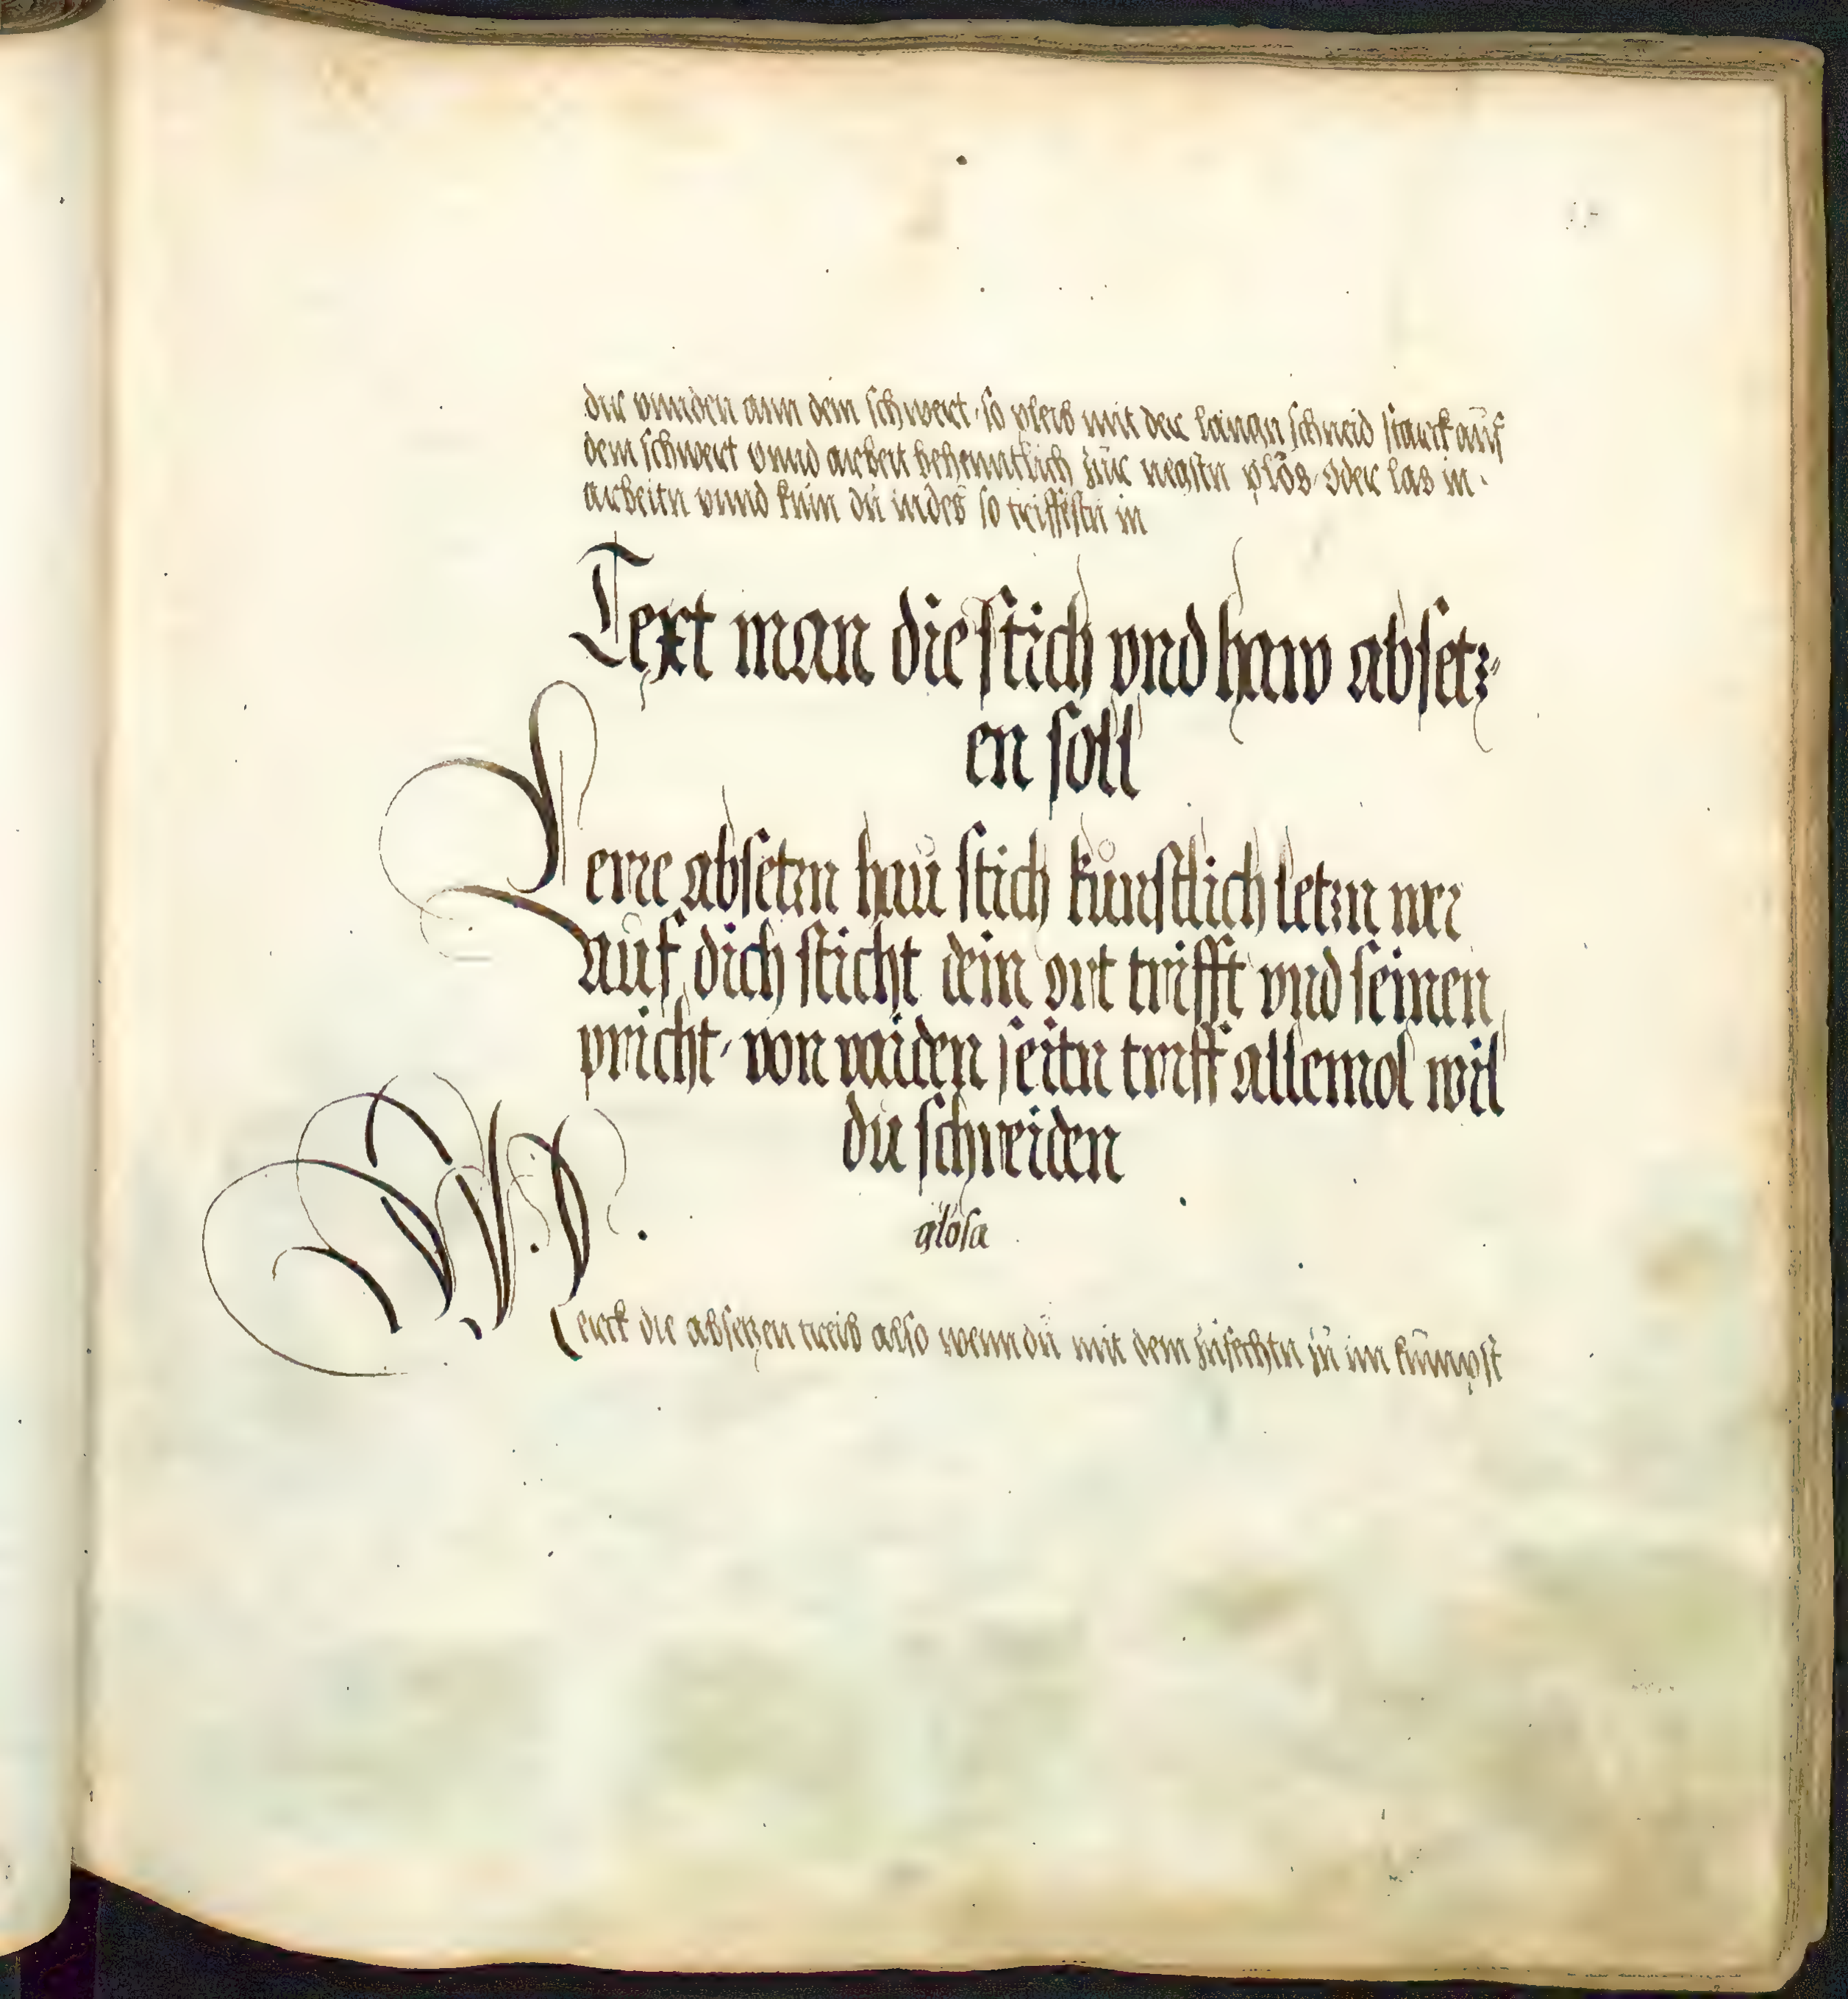 dir vunden ann dem schwert, so pleib mit der langn schneid starck auf
dem schwert vnnd arbeit behenntlich zur negstn plös oder las in
arbeitn vnnd kúm dú indes so triffestu in
Text man die stich vnd haw absetz
en soll
Lerne absetzn haú stich kúnstlich letzn wer
auf dich sticht dein ort trifft vnd seinen
pricht, von paiden seitn triff allemol wil
dú schreiden
glosa
Merck die absetzen treib also wenn dú mit dem zúfechtn zú im kúmpst